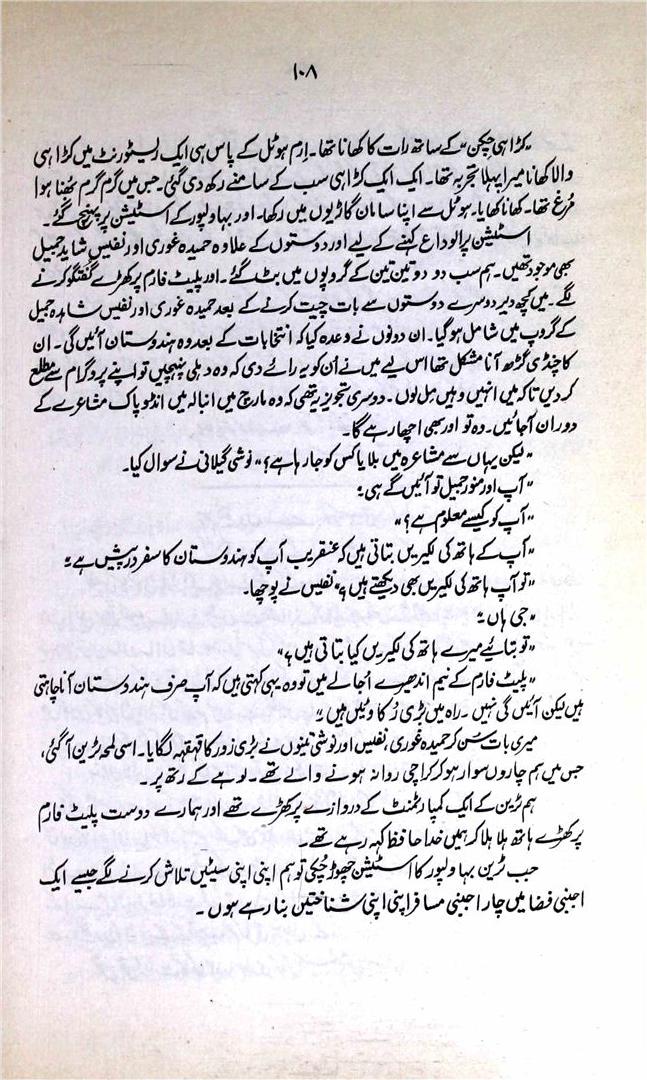 ۱۰۸
"کڑاہی چکن" کے ساتھ رات کا کھانا تھا۔ ارم ہوٹل کے پاس ہی ایک ریسٹورنٹ میں کڑاہی
والا کھانا میرا پہلا تجربہ تھا۔ ایک ایک کڑاہی سب کے سامنے رکھ دی گئی۔ جس میں گرم گرم بھُنا ہوا
مُرغ تھا۔ کھانا کھایا۔ ہوٹل سے اپنا سامان گاڑیوں میں رکھا۔ اور بہاولپور کے اسٹیشن پر پہنچ گئے۔
اسٹیشن پر الوداع کہنے کے لیے اور دوستوں کے علاوہ حمیدہ غوری اور نفیس شاہد جمیل
بھی موجود تھیں۔ ہم سب دو دو تین تین کے گروپوں میں بٹ گئے۔ اور پلیٹ فارم پر کھڑے گفتگو کرنے
لگے۔ میں کچھ دیر دوسرے دوستوں سے بات چیت کرنے کے بعد حمیدہ غوری اور نفیس شاہدہ جمیل
کے گروپ میں شامل ہوگیا۔ ان دونوں نے وعدہ کیا کہ انتخابات کے بعد وہ ہندوستان آئیں گی۔ ان
کا چنڈی گڑھ آنا مشکل تھا اس لیے میں نے اُن کو یہ رائے دی کہ وہ دہلی پہنچیں تو اپنے پروگرام سے مطلع
کردیں تاکہ میں انہیں وہیں مل لوں۔ دوسری تجویز یہ تھی کہ وہ مارچ میں انبالہ میں انڈو پاک مشاعرے کے
دوران آجائیں۔ وہ تو اور بھی اچھا رہے گا۔
"لیکن یہاں سے مشاعرہ میں بلایا کس کو جا رہا ہے؟" نوشی گیلانی نے سوال کیا۔
"آپ اور منور جمیل تو آئیں گے ہی"
"آپ کو کیسے معلوم ہے؟"
"آپ کے ہاتھ کی لکیریں بتاتی ہیں کہ عنقریب آپ کو ہندوستان کا سفر درپیش ہے"
"تو آپ ہاتھ کی لکیریں بھی دیکھتے ہیں؟" نفیس نے پوچھا۔
"جی ہاں"
"تو بتائیے میرے ہاتھ کی لکیریں کیا بتاتی ہیں؟"
"پلیٹ فارم کے نیم اندھیرے اُجالے میں تو وہ یہی کہتی ہیں کہ آپ صرف ہندوستان آنا چاہتی
ہیں لیکن آئیں گی نہیں۔ راہ میں بڑی رُکاوٹیں ہیں"
میری بات سُن کر حمیدہ غوری، نفیس اور نوشی تینوں نے بڑی زور کا قہقہہ لگایا۔ اسی لمحہ ٹرین آگئی،
جس میں ہم چاروں سوار ہو کر کراچی روانہ ہونے والے تھے۔ لوہے کے رتھ پر۔
ہم ٹرین کے ایک کمپارٹمنٹ کے دروازے پر کھڑے تھے اور ہمارے دوست پلیٹ فارم
پر کھڑے ہاتھ ہلا ہلا کر ہمیں خدا حافظ کہہ رہے تھے۔
جب ٹرین بہاولپور کا اسٹیشن چھوڑ چُکی تو ہم اپنی اپنی سیٹیں تلاش کرنے لگے جیسے ایک
اجنبی فضا میں چار اجنبی مسافر اپنی اپنی شناختیں بنا رہے ہوں۔